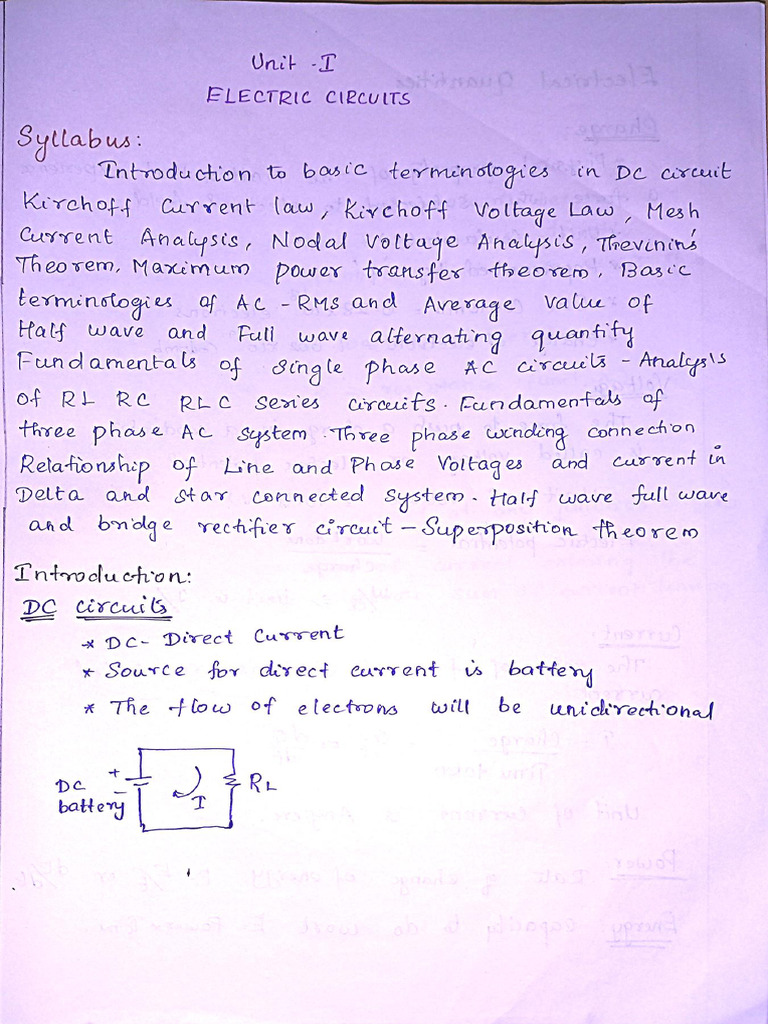 Unit - I
ELECTRIC CIRCUITS
Syllabus:
Introduction to basic terminologies in DC circuit
Kirchoff Current law, Kirchoff Voltage Law, Mesh
Current Analysis, Nodal Voltage Analysis, Thevinin's
Theorem, Maximum power transfer theorem, Basic
terminologies of AC - RMS and Average value of
Half wave and Full wave alternating quantify
Fundamentals of single phase AC circuits - Analysis
of RL RC RLC series circuits. Fundamentals of
three phase AC system. Three phase winding connection
Relationship of Line and Phase Voltages and current in
Delta and star connected system. Half wave full wave
and bridge rectifier circuit - Superposition theorem
Introduction:
DC circuits
* DC - Direct Current
* Source for direct current is battery
* The flow of electrons will be unidirectional
DC battery + - I RL